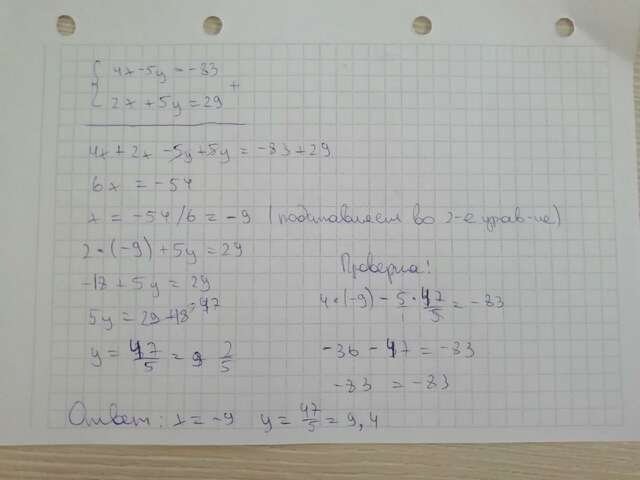 { 4x-5y=-83
{ 2x+5y=29 +
4x+2x-5y+5y=-83+29
6x=-54
x=-54/6=-9 (подставляем во 2-е урав-ие)
2·(-9)+5y=29
-18+5y=29
5y=29+18=47
y=47/5=9 2/5
Проверка!
4·(-9)-5·47/5=-83
-36-47=-83
-83=-83
Ответ: x=-9 y=47/5=9,4